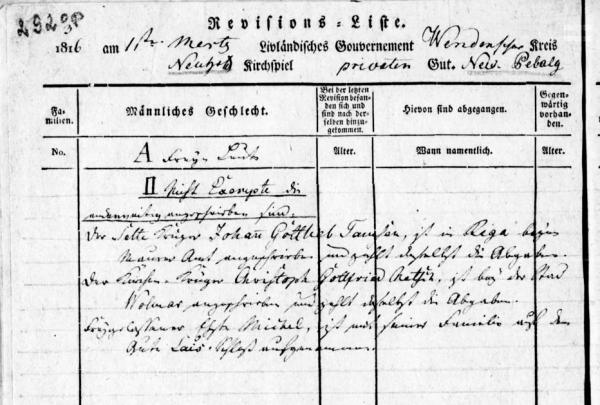 2929P
Revisions-Liste.
1816 am 1sten Mertz Livländisches Gouvernement Wendenscher Kreis
Neuhof Kirchspiel privaten Gut. New Pebalg
Fa-
milien.
Männliches Geschlecht.
Bei der letzten
Revision befan-
den sich und
sind nach der-
selben hinzu-
gekommen.
Hievon sind abgegangen.
Gegen-
wärtig
vorhan-
den.
No. Alter. Wann namentlich. Alter.
A Freye Leute
II Nicht Exempte die
anderweitig angeschrieben sind.
Der Sette Krüger Johann Gottlieb, ist in Riga beym
Maurer Amt angeschrieben und zahlt daselbst die Abgaben.
Der Kirchen-Krüger Christoph Gottfried, ist bey der Stad
Wolmar angeschrieben und zahlt daselbst die Abgaben.
Freygelassener Michel, ist mit seiner Familie auf dem
Gute Lais-Schloß aufgenommen.